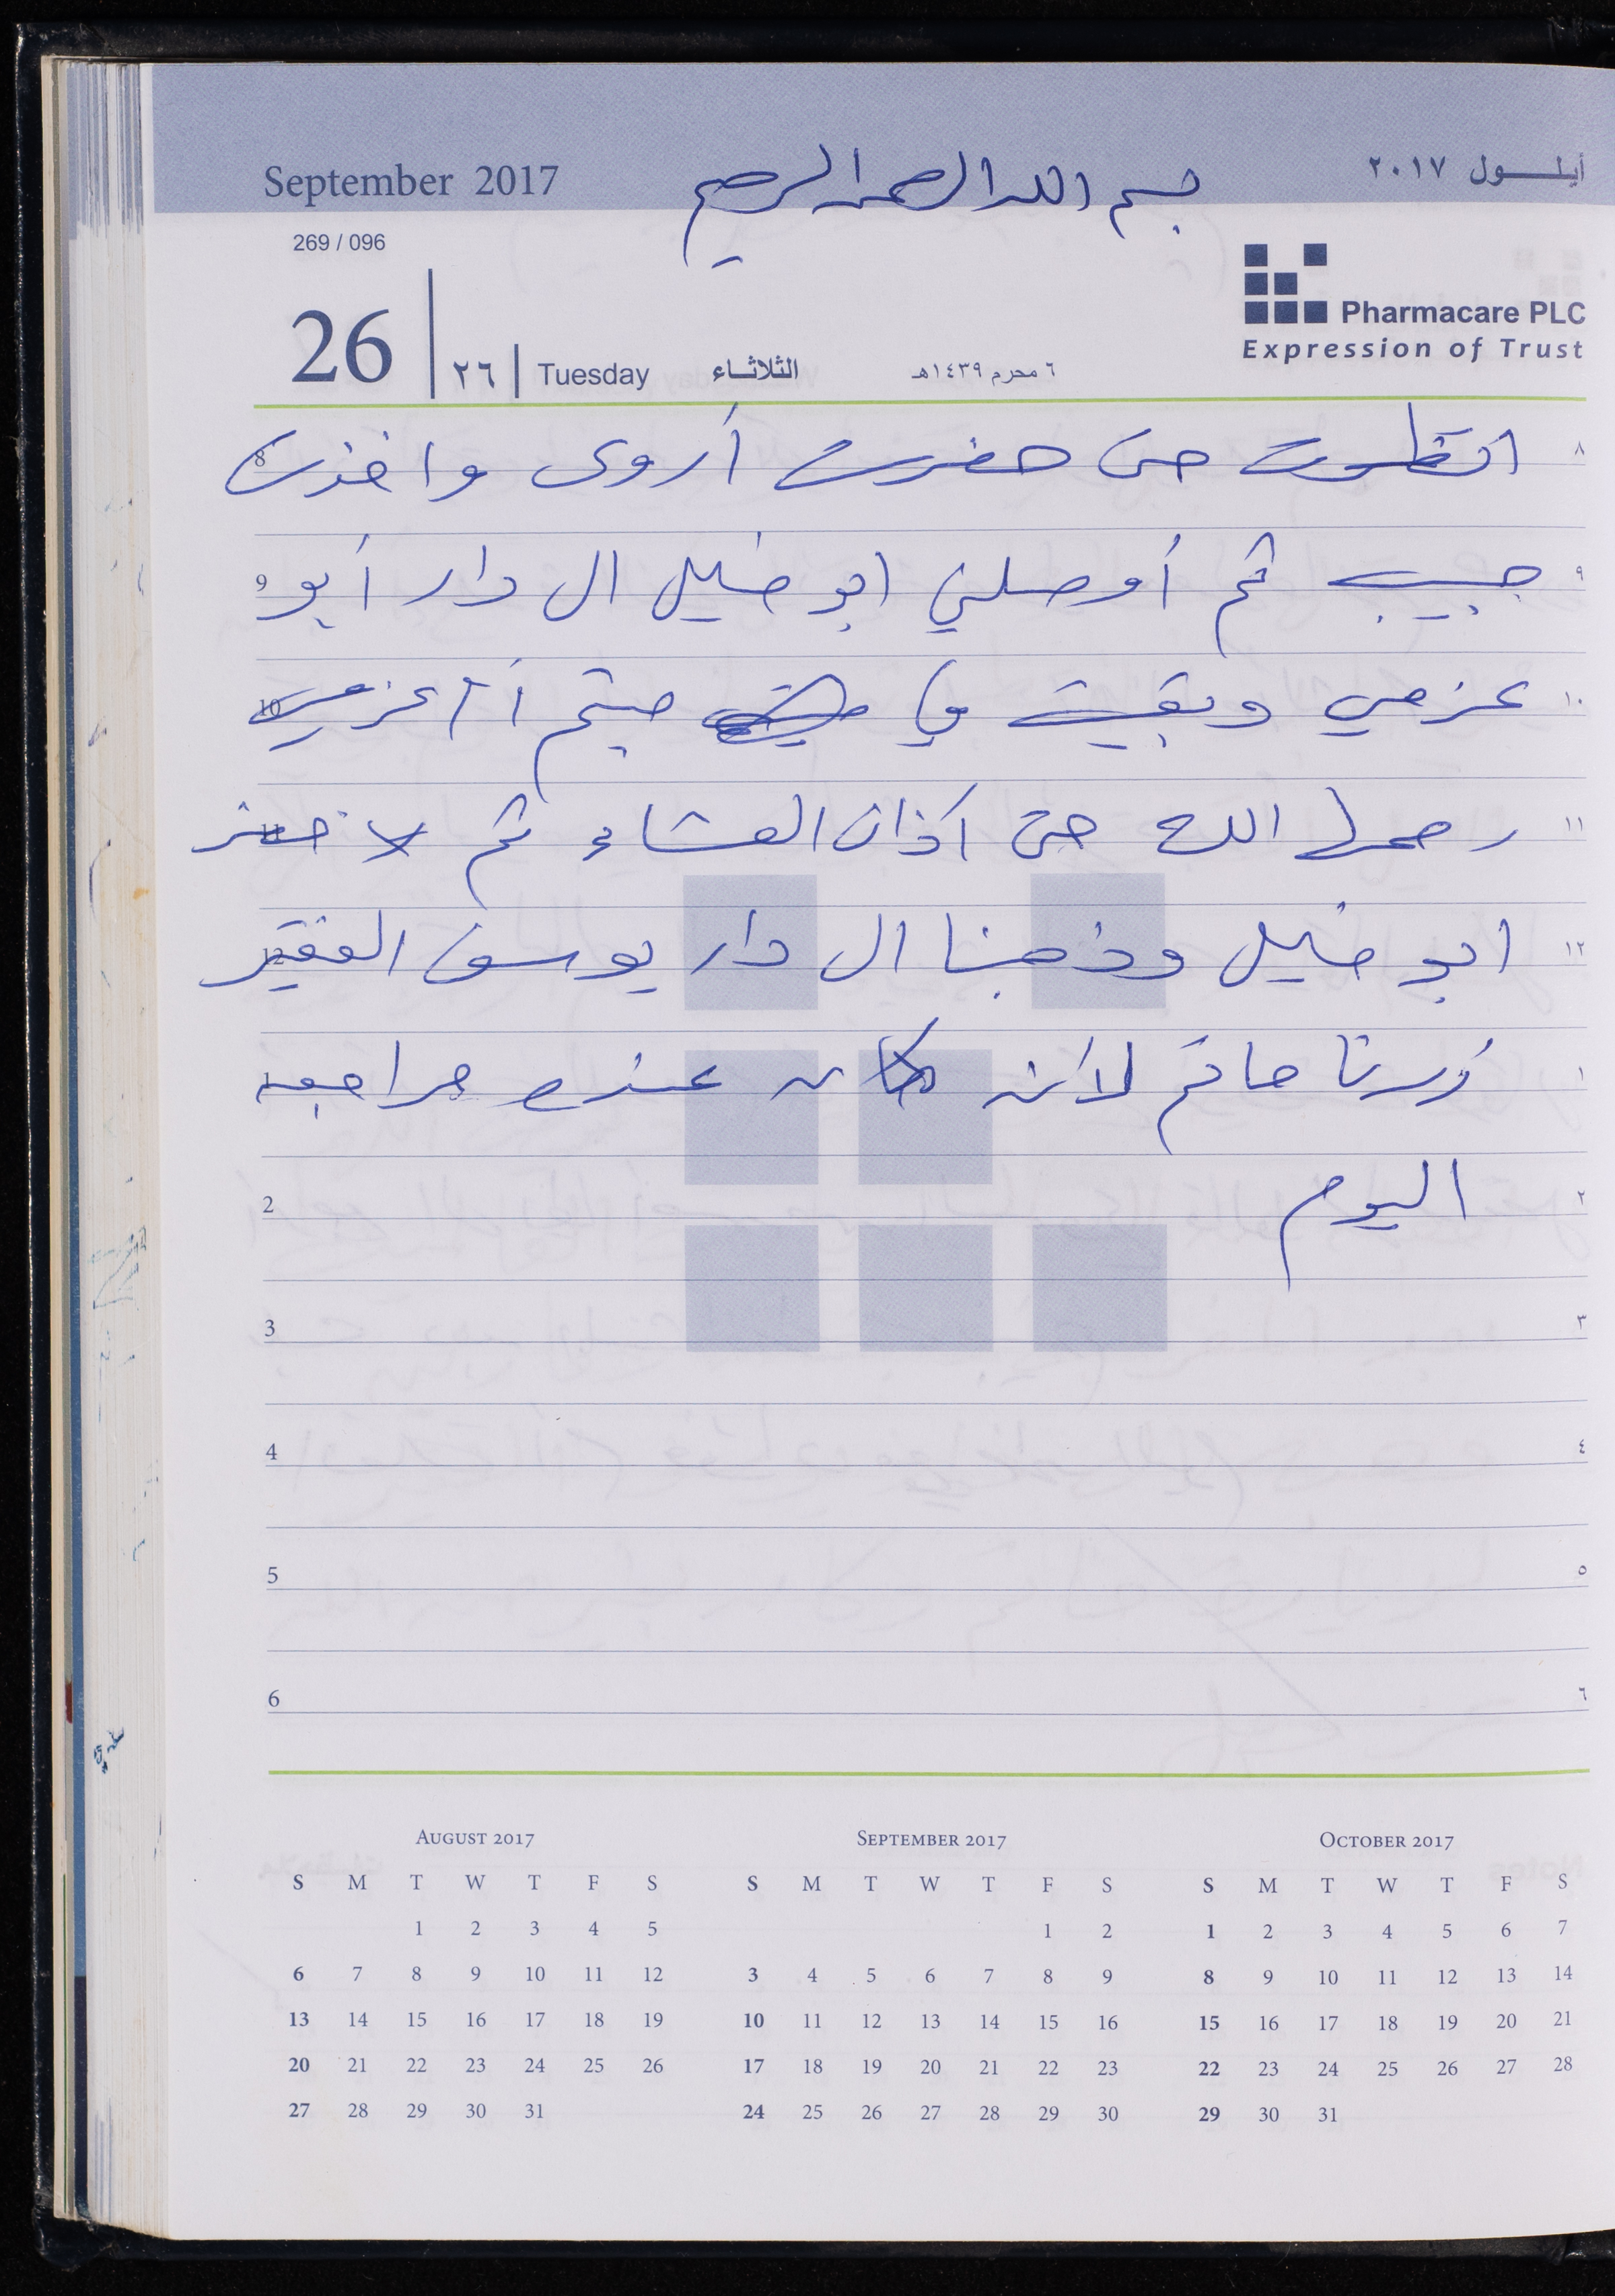 September 2017
بسم الله الرحمن الرحيم
أيلول ٢٠١٧
269 / 096
26 | ٢٦ | Tuesday الثلاثاء ٦ محرم ١٤٣٩هـ
Pharmacare PLC
Expression of Trust
انتظرت حتى حضرت أروى واخذت 8 ٨
حبيب ثم أوصلني ابو خليل الى دار أبو 9 ٩
عزمي وبقيت في ميتم أم عزمي 10 ١٠
رحمها الله حتى اذان العشاء ثم 11 ١١
ابو خليل وذهبنا الى دار يوسف الفقير 12 ١٢
زرنا حاتم لأنه كان عنده مراجعه 1 ١
اليوم 2 ٢
3 ٣
4 ٤
5 ٥
6 ٦
AUGUST 2017
S M T W T F S
1 2 3 4 5
6 7 8 9 10 11 12
13 14 15 16 17 18 19
20 21 22 23 24 25 26
27 28 29 30 31
SEPTEMBER 2017
S M T W T F S
1 2
3 4 5 6 7 8 9
10 11 12 13 14 15 16
17 18 19 20 21 22 23
24 25 26 27 28 29 30
OCTOBER 2017
S M T W T F S
1 2 3 4 5 6 7
8 9 10 11 12 13 14
15 16 17 18 19 20 21
22 23 24 25 26 27 28
29 30 31